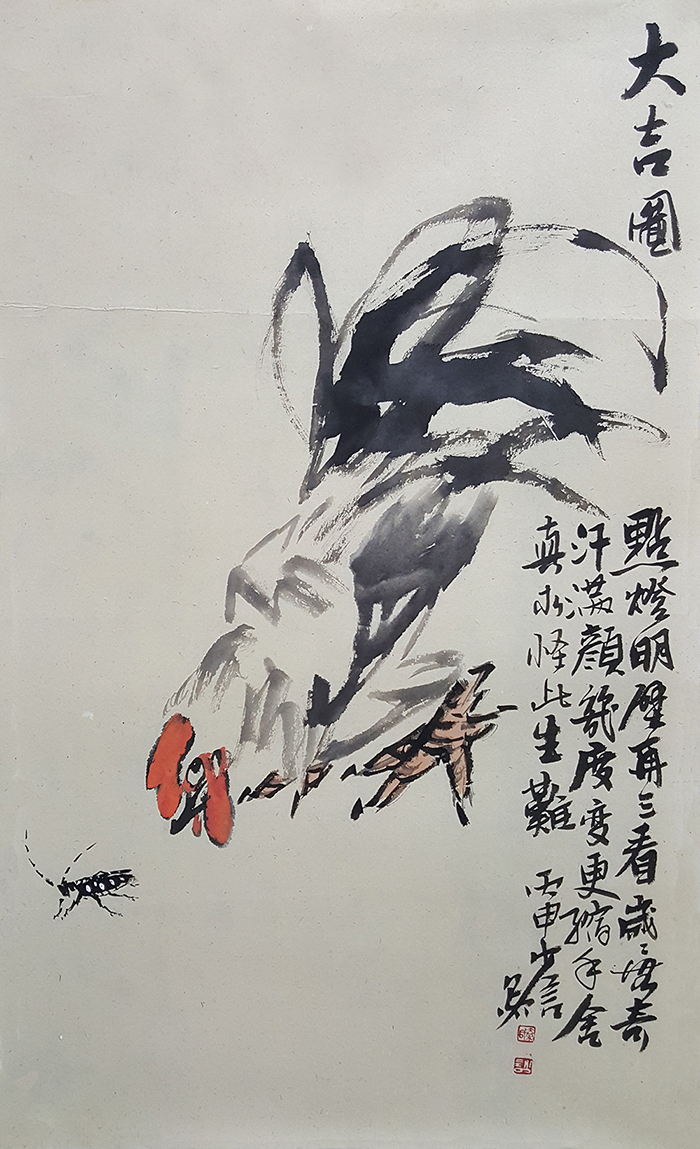 大吉圖
點燈明壁再三看歲〻無奇
汗滿顏幾度變更縮手舍
真求怪此生難 丙申